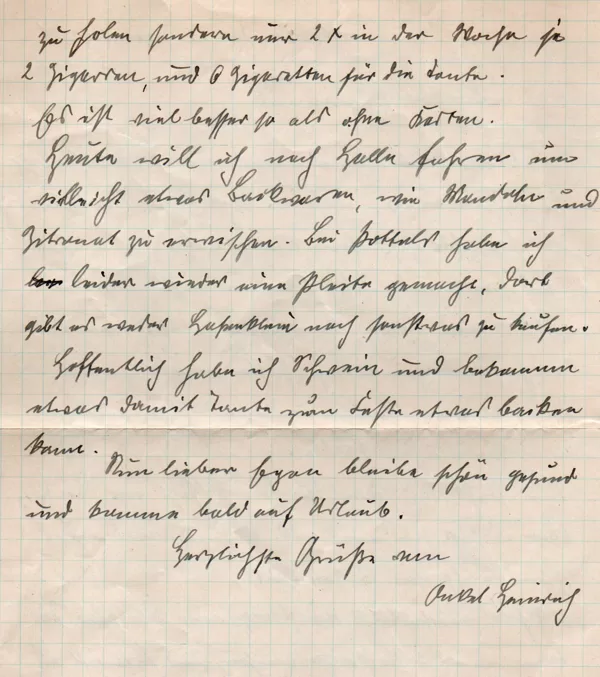 zu holen sondern nur 2 x in der Woche je
2 Zigarren, und 6 Zigaretten für die Tante.
Es ist viel besser so als ohne Karten.
Heute will ich nach Halle fahren um
vielleicht etwas Backwaren, wie Mandeln und
Zitronat zu erwischen. Bei Pottels habe ich
leider wieder eine Pleite gemacht, dort
gibt es weder Hasenklein noch sonstwas zu kaufen.
Hoffentlich habe ich Schwein und bekomme
etwas damit Tante zum Feste etwas backen
kann.
Nun lieber Egon bleibe schön gesund
und komme bald auf Urlaub.
Herzlichste Grüße von
Onkel Heinrich